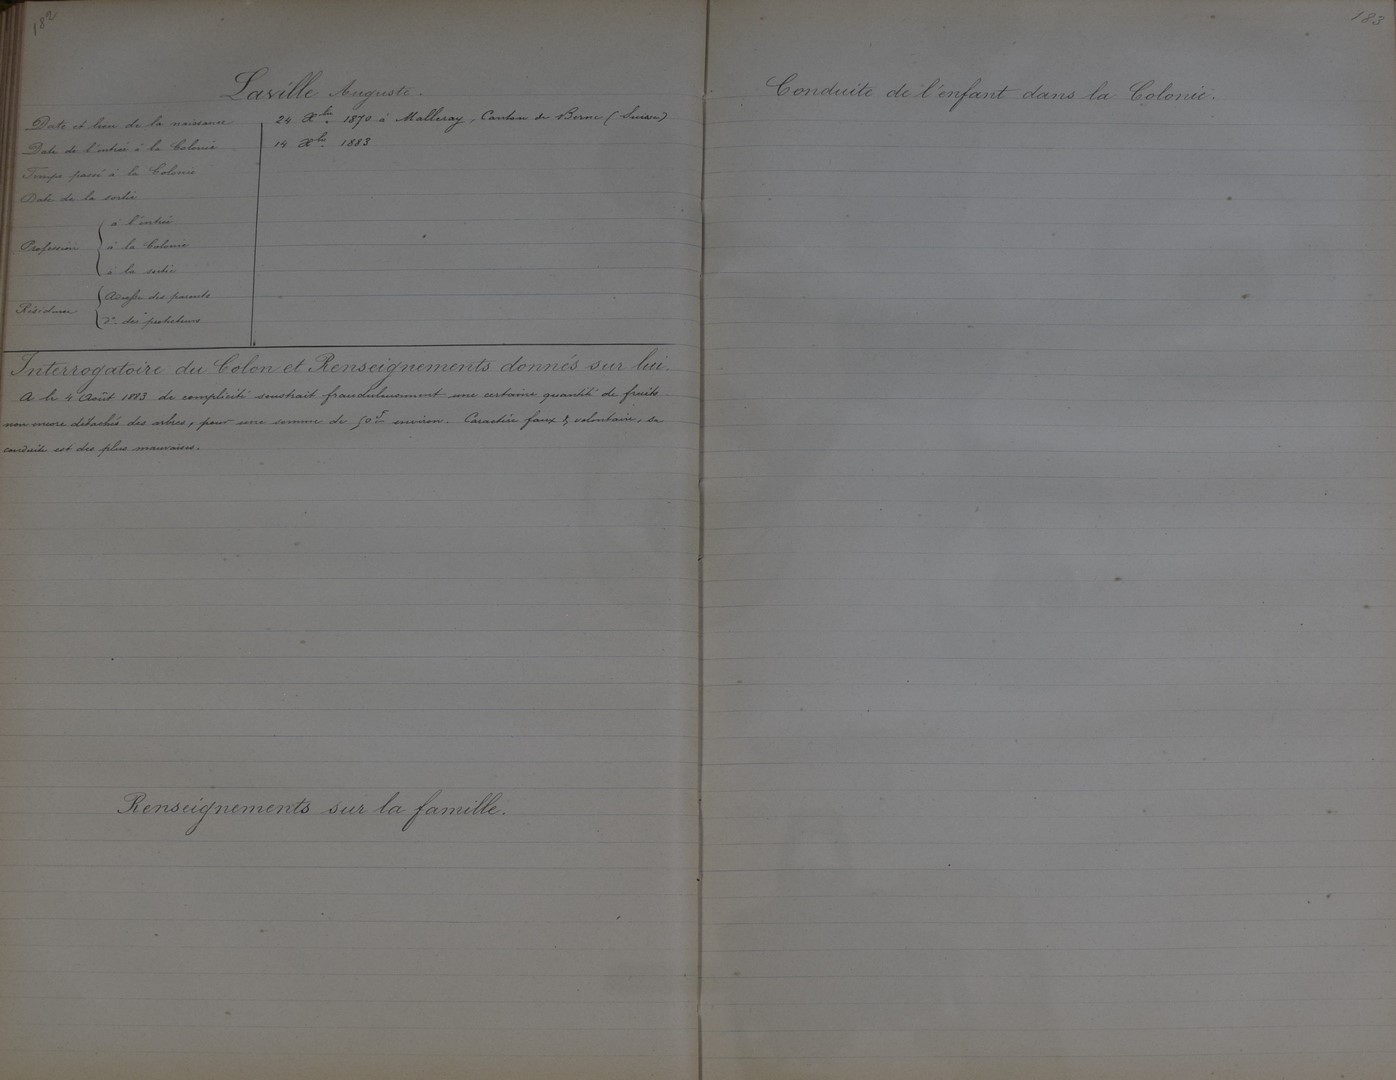 182
Laville Auguste.
Date et lieu de la naissance 24 Xbre 1870 à Malleray, Canton de Berne (Suisse)
Date de l'entrée à la Colonie 14 Xbre 1883
Temps passé à la Colonie
Date de la sortie
Profession
à l'entrée
à la Colonie
à la sortie
Résidence
Adresse des parents
do des protecteurs
Interrogatoire du Colon et Renseignements donnés sur lui.
A le 4 Août 1883 de complicité soustrait frauduleusement une certaine quantité de fruits
non encore détachés des arbres, pour une somme de 50f environ. Caractère faux & volontaire, sa
conduite est des plus mauvaises.
Renseignements sur la famille.
183
Conduite de l'enfant dans la Colonie.